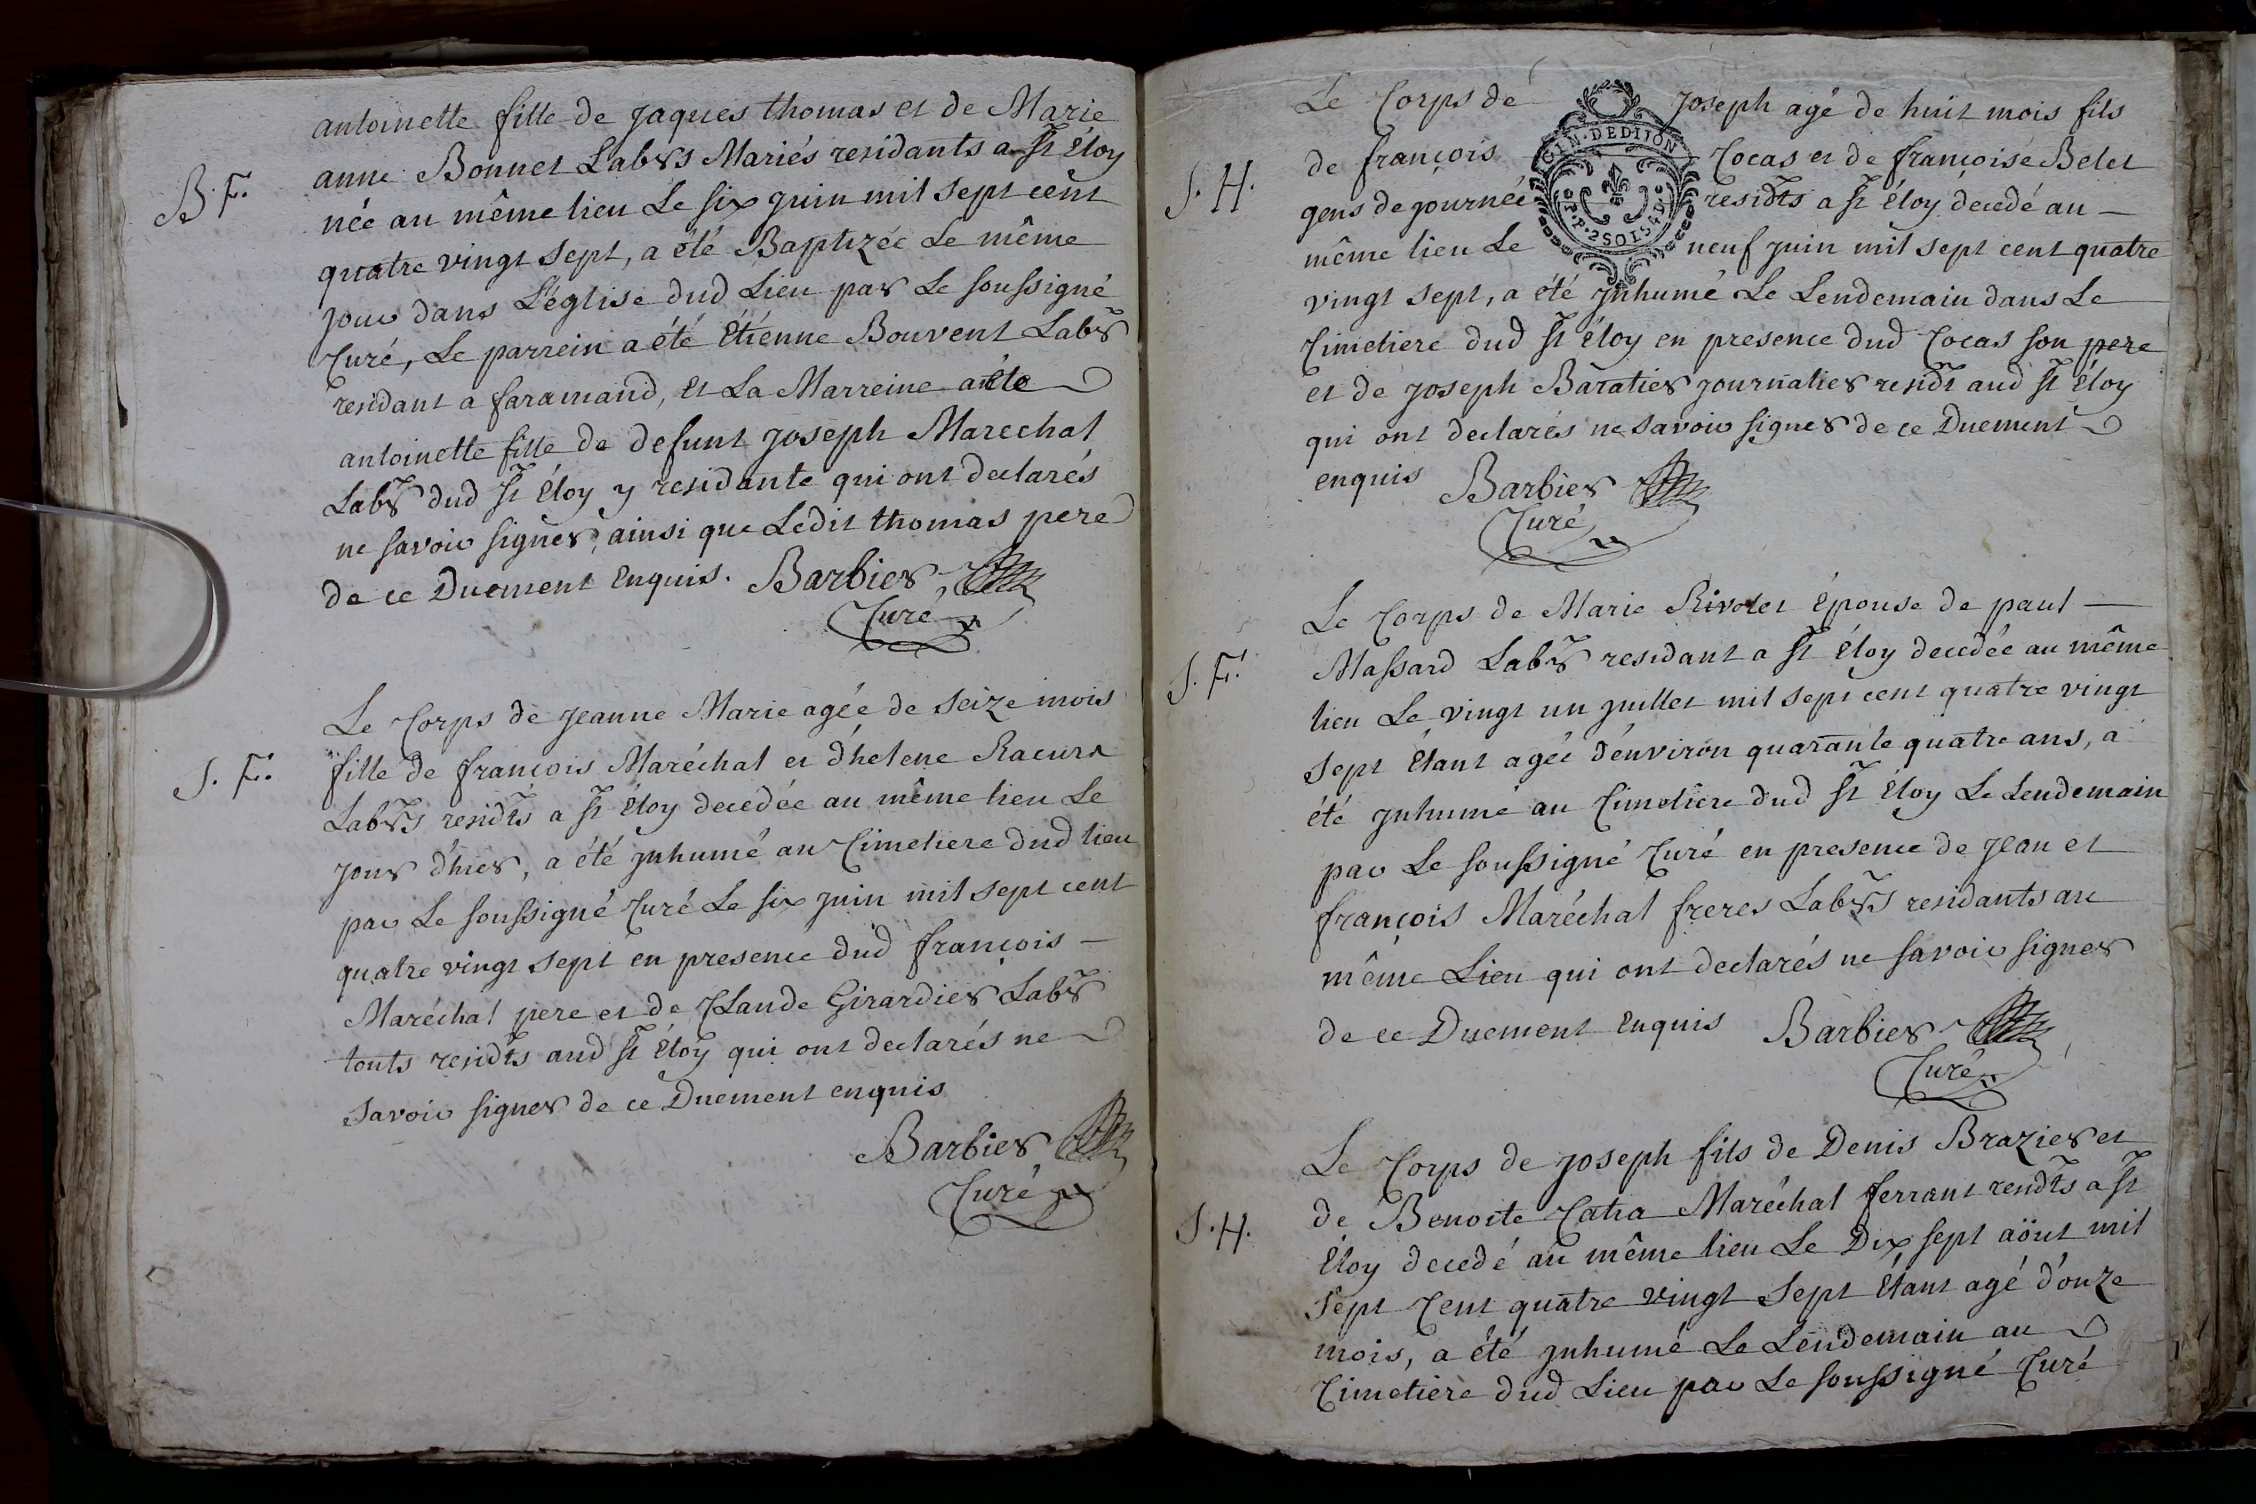 antoinette fille de jaques thomas et de Marie
B. F. anne Bonnet Labrs Mariés residants a St Éloy
née au même lieu Le six juin mil sept cent
quatre vingt sept, a été Baptizée Le même
jour dans L'église dud Lieu par Le soussigné
Curé, Le parrein a été Étienne Bouvent Labr
residant a faramand, et La Marreine a été
antoinette fille de defunt joseph Marechal
Labr dud St Éloy y residante qui ont declarés
ne savoir signer, ainsi que Ledit thomas pere
de ce Duement Enquis. Barbier
Curé
Le Corps de jeanne Marie agée de seize mois
S. F. fille de françois Maréchal et d'helene
Labrs residts a St Éloy decedée au même lieu Le
jour d'hier, a été jnhumé au Cimetiere dud lieu
par Le soussigné Curé Le six juin mil sept cent
quatre vingt sept en presence dud françois
Maréchal pere et de Claude Girardier Labr
touts residts aud St Éloy qui ont declarés ne
savoir signer de ce Duement enquis
Barbier
Curé
GEN. DE DIJON
P.P. 2 SOLS 4 D.
Le Corps de joseph agé de huit mois fils
S. H. de françois Cocas et de françoise Belet
gens de journée residts a St Éloy decedé au
même lieu Le neuf juin mil sept cent quatre
vingt sept, a été jnhumé Le Lendemain dans Le
Cimetiere dud St éloy en presence dud Cocas son pere
et de joseph Baratier journalier residt aud St Éloy
qui ont declarés ne savoir signer de ce Duement
enquis Barbier
Curé
Le Corps de Marie Rivolet Épouse de paul
S. F. Massard Labr residant a St Éloy decedée au même
lieu Le vingt un juillet mil sept cent quatre vingt
sept Étant agée d'environ quarante quatre ans, a
été jnhumé au Cimetiere dud St Éloy Le Lendemain
par Le soussigné Curé en presence de jean et
françois Maréchal freres Labrs residants au
même Lieu qui ont declarés ne savoir signer
de ce Duement Enquis Barbier
Curé
Le Corps de joseph fils de Denis Brazier et
S. H. de Benoite Catia Maréchal ferrant residts a St
Éloy decedé au même lieu Le Dix sept aöut mil
sept Cent quatre vingt sept Étant agé d'onze
mois, a été jnhumé Le Lendemain au
Cimetiere dud Lieu par Le soussigné Curé